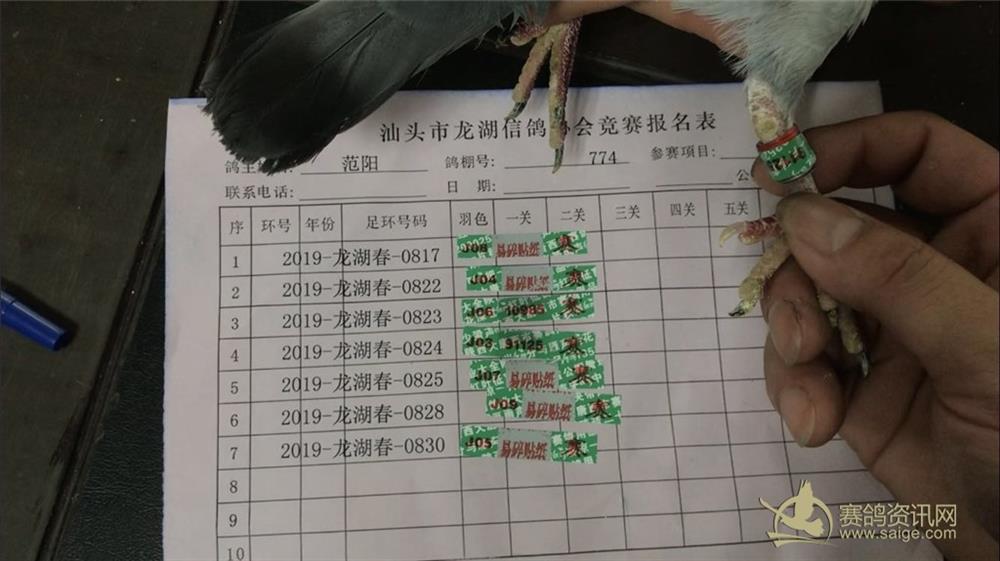 汕头市龙湖信鸽协会竞赛报名表
范阳 鸽棚号: 774 参赛项目:
联系电话: 日 期:
序 环号 年份 足环号码 羽色 一关 二关 三关 四关 五关
1 2019-龙湖春-0817 J08 易碎贴纸 赛
2 2019-龙湖春-0822 J04 易碎贴纸 赛
3 2019-龙湖春-0823 J06 10985 赛
4 2019-龙湖春-0824 J03 91125 赛
5 2019-龙湖春-0825 J07 易碎贴纸 赛
6 2019-龙湖春-0828 J09 易碎贴纸 赛
7 2019-龙湖春-0830 J05 易碎贴纸 赛
8
9
10
赛鸽资讯网
www.saige.com